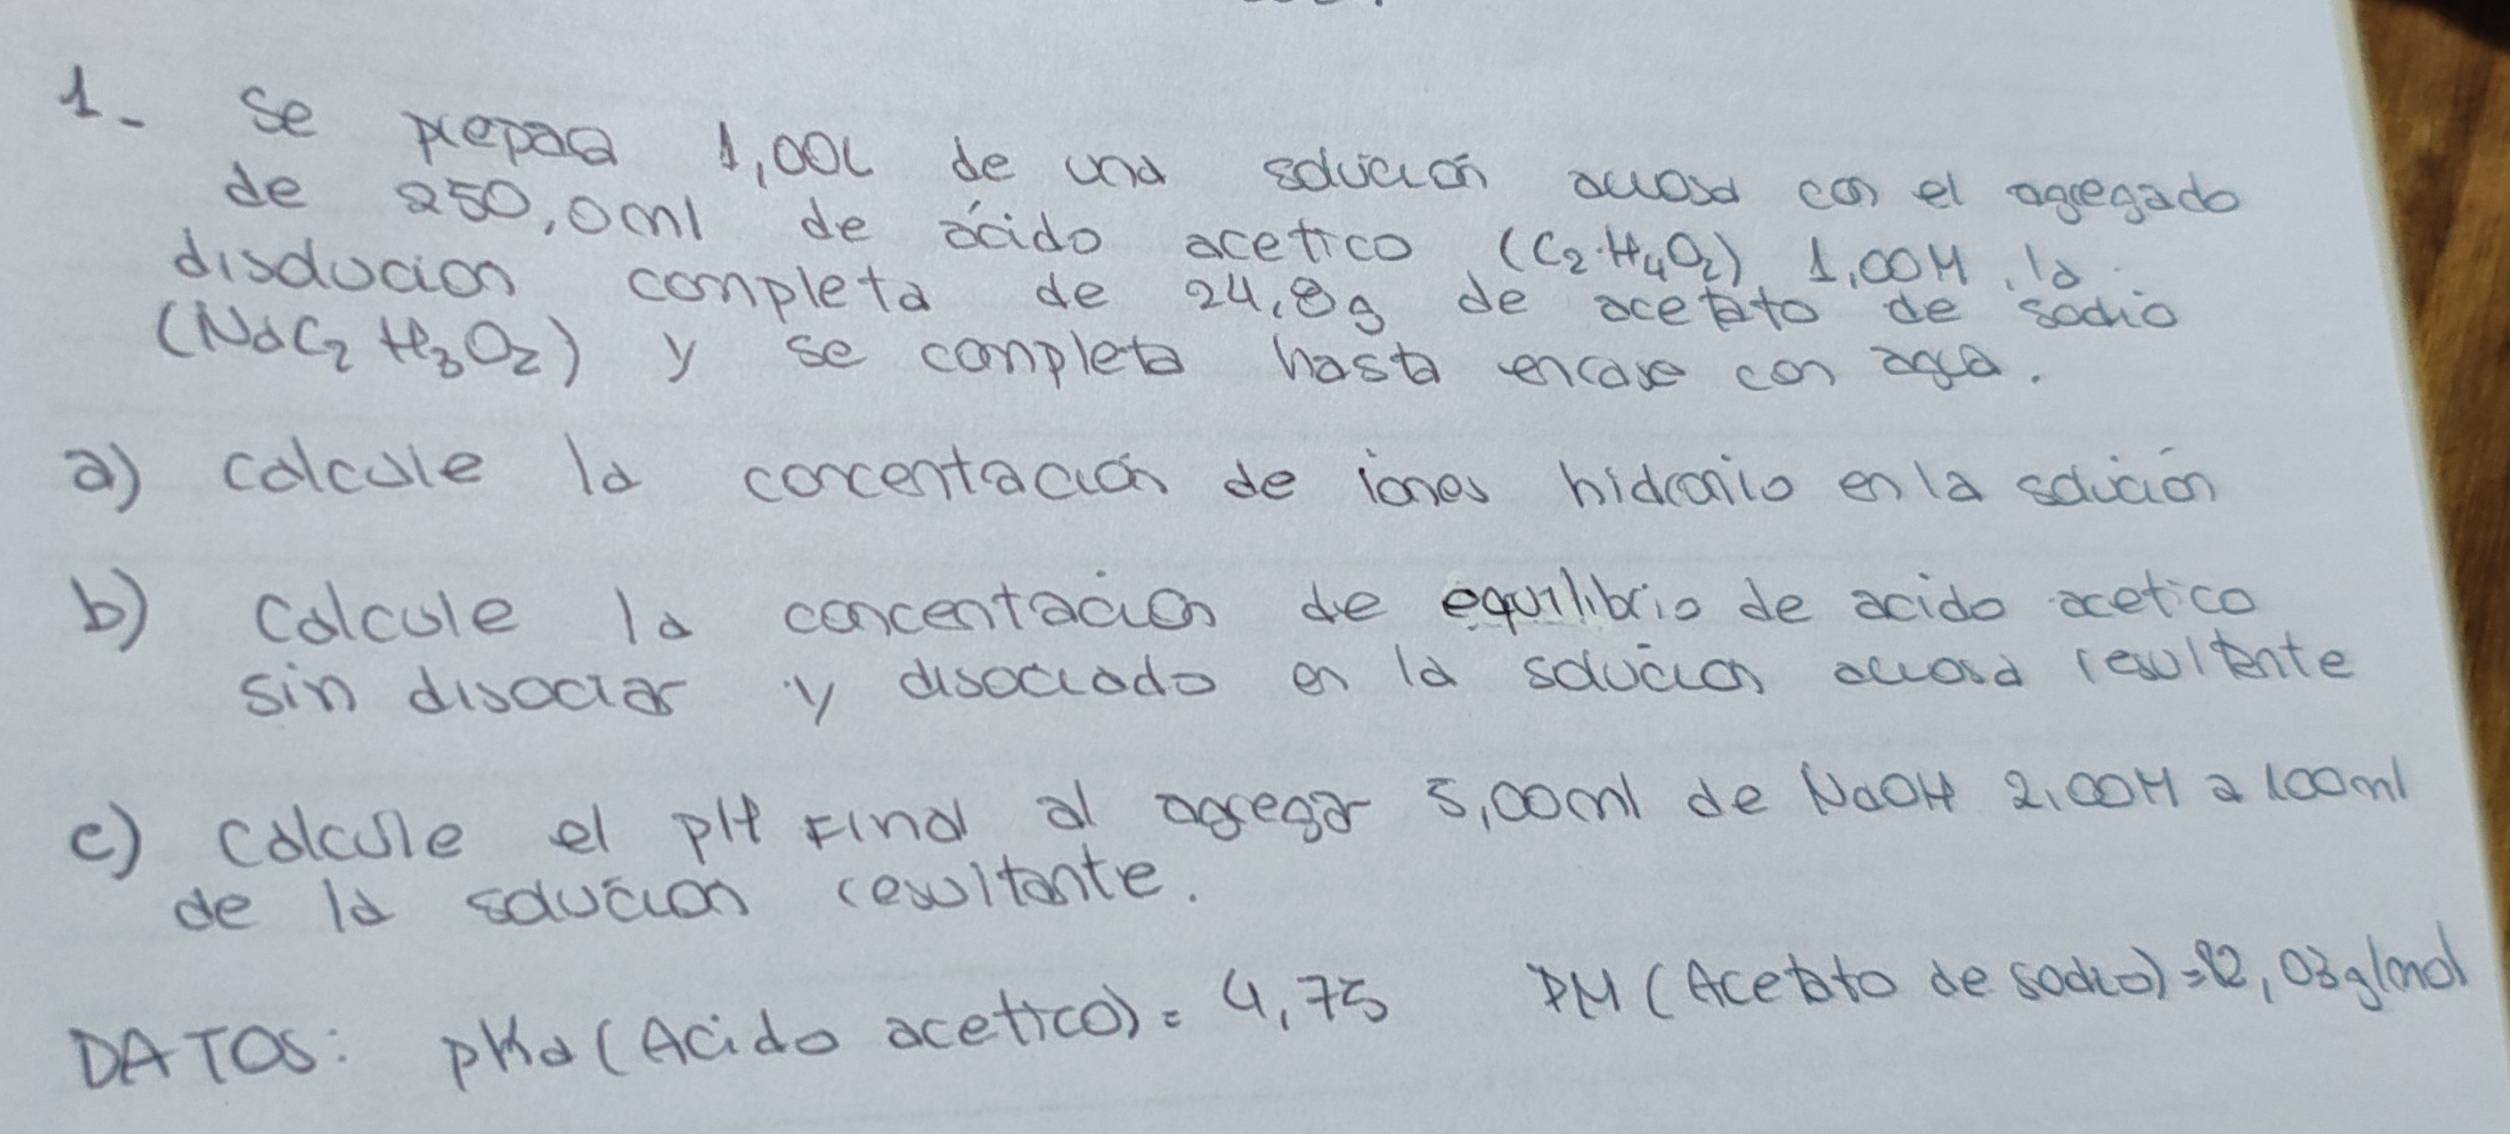 1- Se prepara 1,00L de una solución acuosa con el agregado
de 250,0ml de ácido acetico (C₂H₄O₂) 1,00M, la
disolucion completa de 24,8g de acetato de sodio
(NaC₂H₃O₂) y se completa hasta enrase con agua.
a) calcule la concentración de iones hidronio en la solución
b) Calcule la concentración de equilibrio de acido acetico
sin disociar y disociado en la solución acuosa resultante
c) Calcule el pH Final al agregar 5,00ml de NaOH 2,00M a 100ml
de la solución resultante.
DATOS: pKa (Acido acetico) = 4,75 PM (Acetato de sodio) = 82,03g/mol